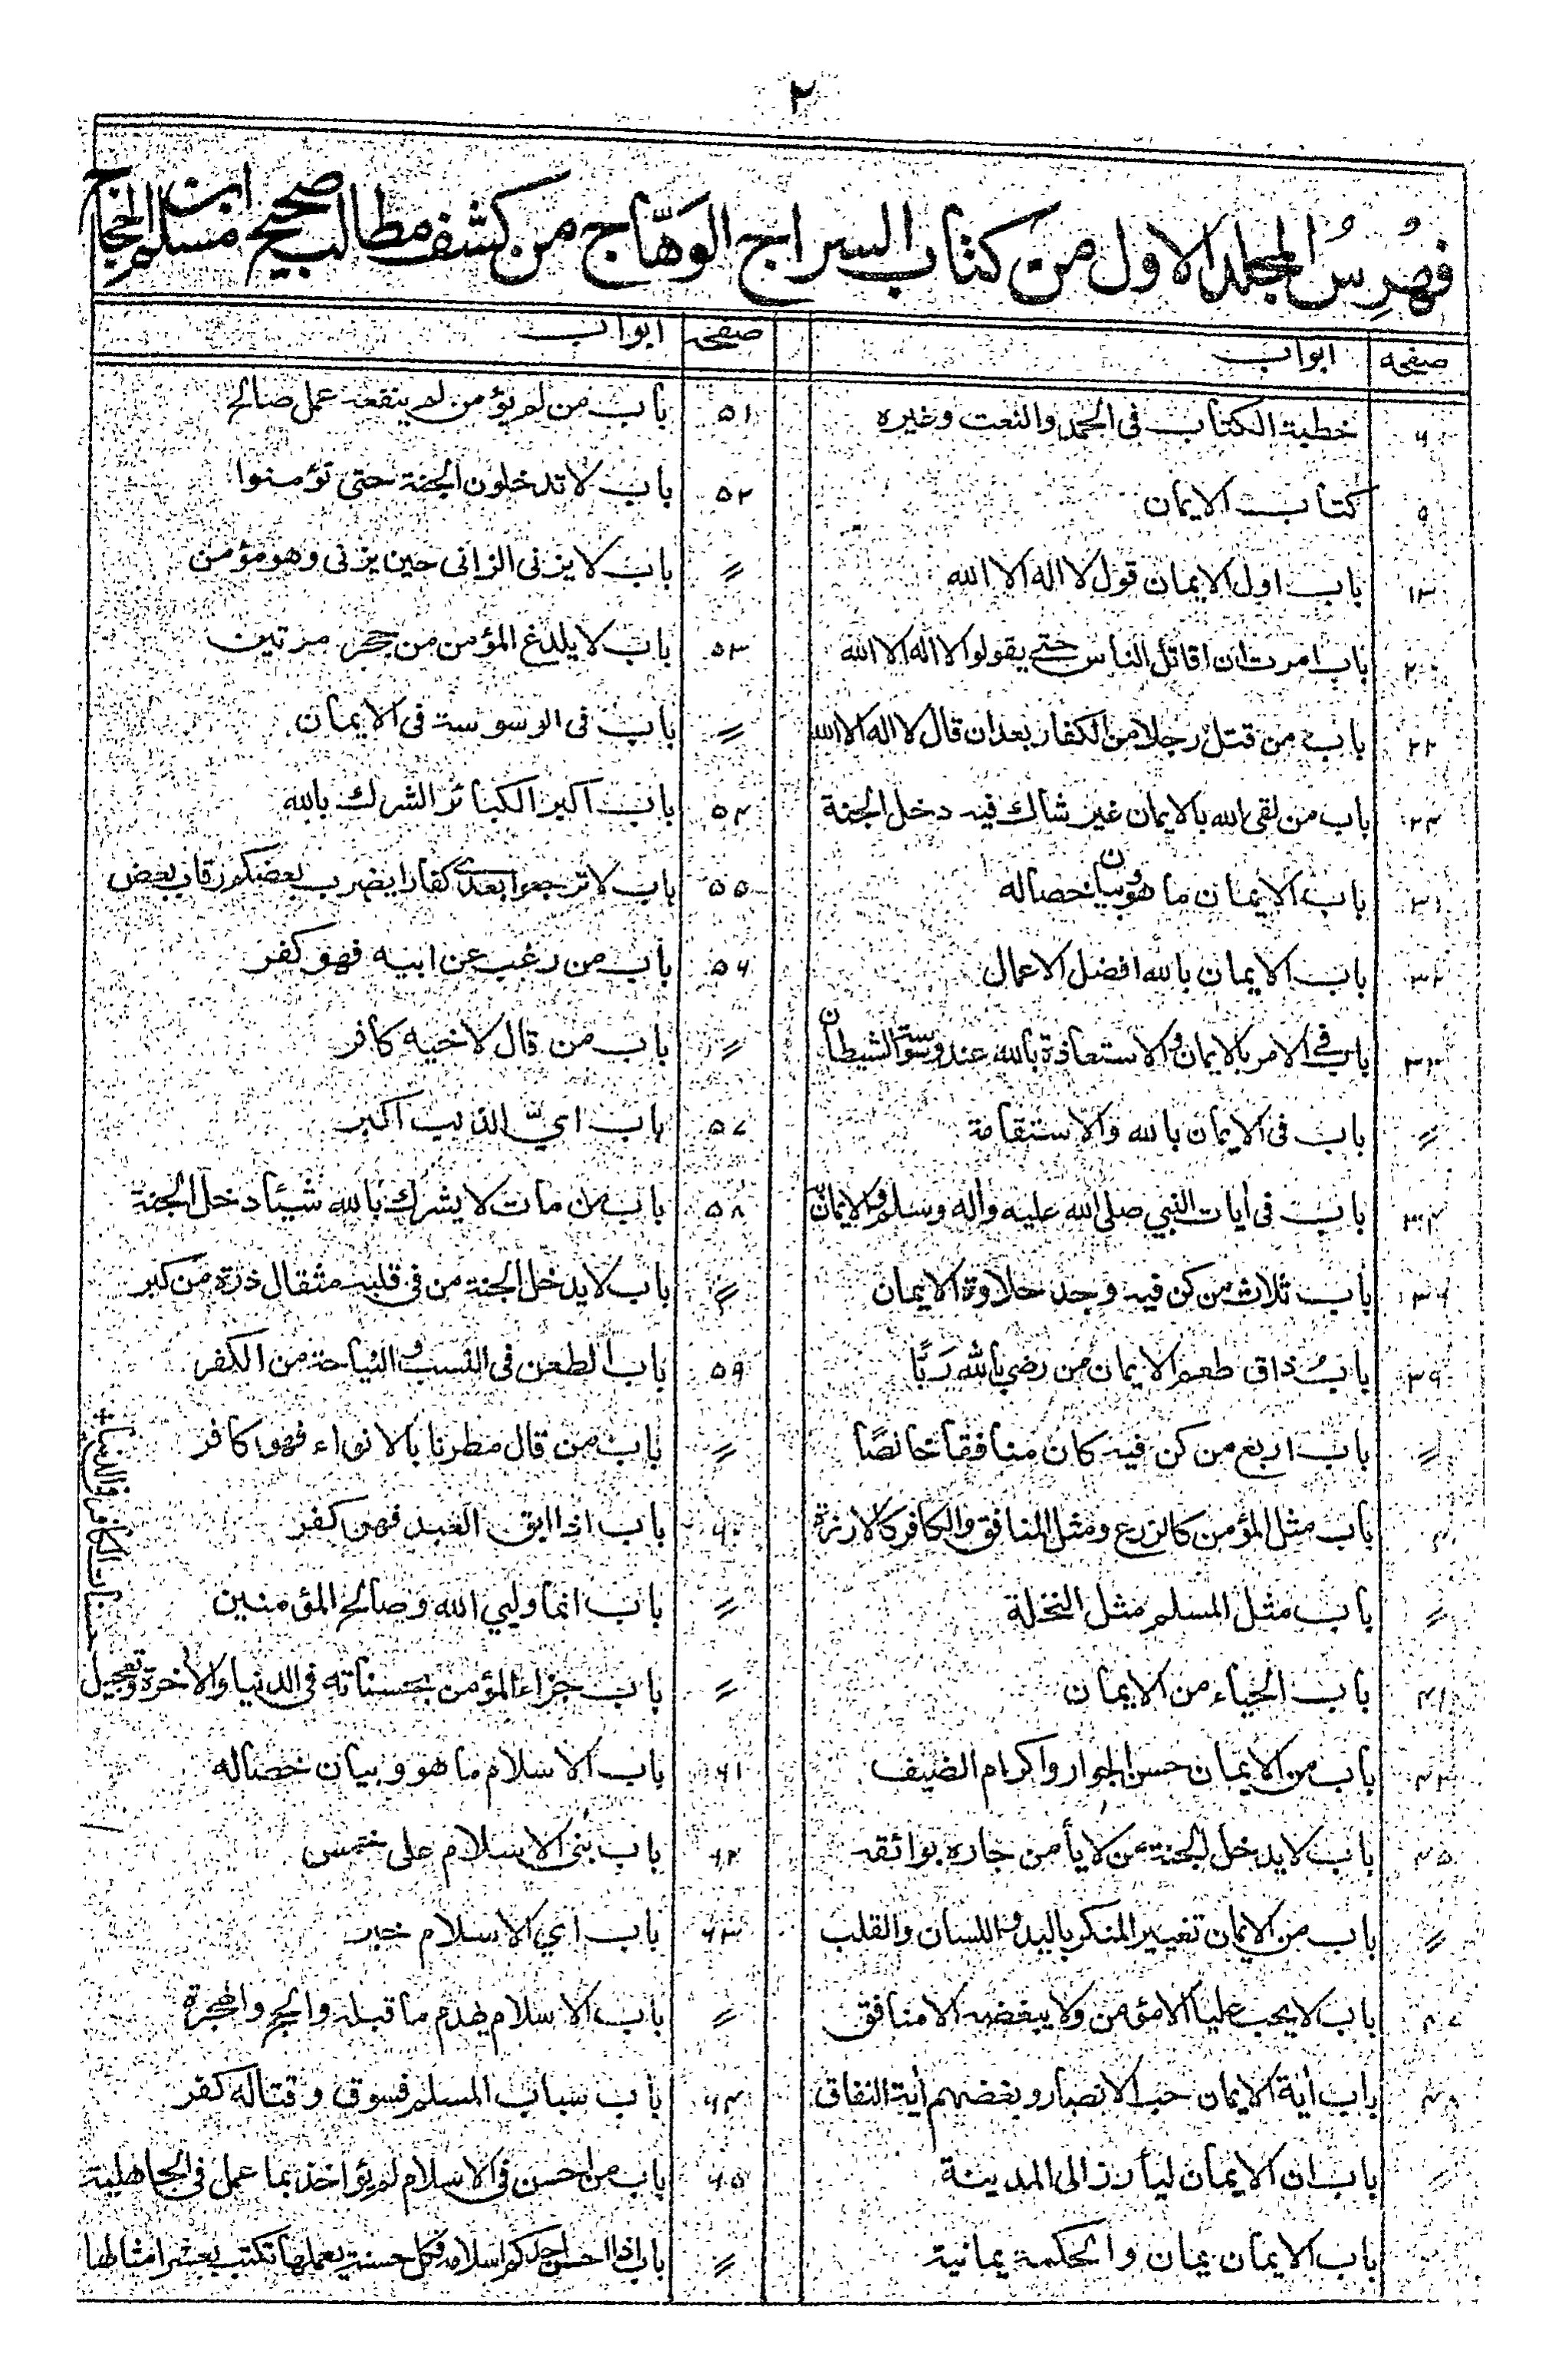 ٢
فهرس المجلد الاول من كتاب السراج الوهّاج من كشف مطالب صحيح مسلم ابن الحجاج
صفحه ابواب
خطبة الكتاب فى الحمد والنعت وغيره
٥ كتاب الايمان
١٣ باب اول الايمان قول لا اله الا الله
٢٠ باب امرت ان اقاتل الناس حتى يقولوا لا اله الا الله
٢٢ باب من قتل رجلا من الكفار بعد ان قال لا اله الا الله
٢٤ باب من لقى الله بالايمان غير شاك فيه دخل الجنة
٣١ باب الايمان ما هو وبيان خصاله
٣٢ باب الايمان بالله افضل الاعمال
٣٣ باب فى الامر بالايمان والاستعاذة بالله عند وسوسة الشيطان
〃 باب فى الايمان بالله والاستقامة
٣٤ باب فى أيات النبي صلى الله عليه وأله وسلم والايمان به
٣٦ باب ثلاث من كن فيه وجد حلاوة الايمان
٣٩ باب ذاق طعم الايمان من رضي بالله ربًّا
〃 باب اربع من كن فيه كان منافقا خالصًا
باب مثل المؤمن كالزرع ومثل المنافق والكافر كالارزة
〃 باب مثل المسلم مثل النخلة
٤١ باب الحياء من الايمان
باب من الايمان حسن الجوار واكرام الضيف
٤٥ باب لا يدخل الجنة من لا يأمن جاره بوائقه
〃 باب من الايمان تغيير المنكر باليد واللسان والقلب
٤٧ باب لا يحب عليا الا مؤمن ولا يبغضه الا منافق
باب أية الايمان حب الانصار وبغضهم أية النفاق
باب ان الايمان ليأرز الى المدينة
باب الايمان يمان والحكمة يمانية
صفحه ابواب
٥١ باب من لم يؤمن لم ينفعه عمل صالح
٥٢ باب لا تدخلون الجنة حتى تؤمنوا
〃 باب لا يزنى الزانى حين يزنى وهو مؤمن
٥٣ باب لا يلدغ المؤمن من جحر مرتين
〃 باب فى الوسوسة فى الايمان
٥٤ باب اكبر الكبائر الشرك بالله
٥٥ باب لا ترجعوا بعدى كفارا يضرب بعضكم رقاب بعض
٥٦ باب من رغب عن ابيه فهو كفر
〃 باب من قال لاخيه كافر
٥٧ باب ايّ الذنب اكبر
٥٨ باب من مات لا يشرك بالله شيئا دخل الجنة
〃 باب لا يدخل الجنة من فى قلبه مثقال ذرة من كبر
٥٩ باب الطعن فى النسب والنياحة من الكفر
〃 باب من قال مطرنا بالانواء فهو كافر
٦٠ باب اذا ابق العبد فهو كفر
〃 باب انما وليي الله وصالح المؤمنين
〃 باب جزاء المؤمن بحسناته فى الدنيا والأخرة وتعجيل
حسنات الكافر فى الدنيا
٦١ باب الاسلام ما هو وبيان خصاله
٦٢ باب بنى الاسلام على خمس
٦٣ باب اي الاسلام خير
〃 باب الاسلام يهدم ما قبله والحج والهجرة
٦٤ باب سباب المسلم فسوق وقتاله كفر
٦٥ باب من احسن فى الاسلام لم يؤاخذ بما عمل فى الجاهلية
〃 باب اذا احسن احدكم اسلامه فكل حسنة يعملها تكتب بعشر امثالها